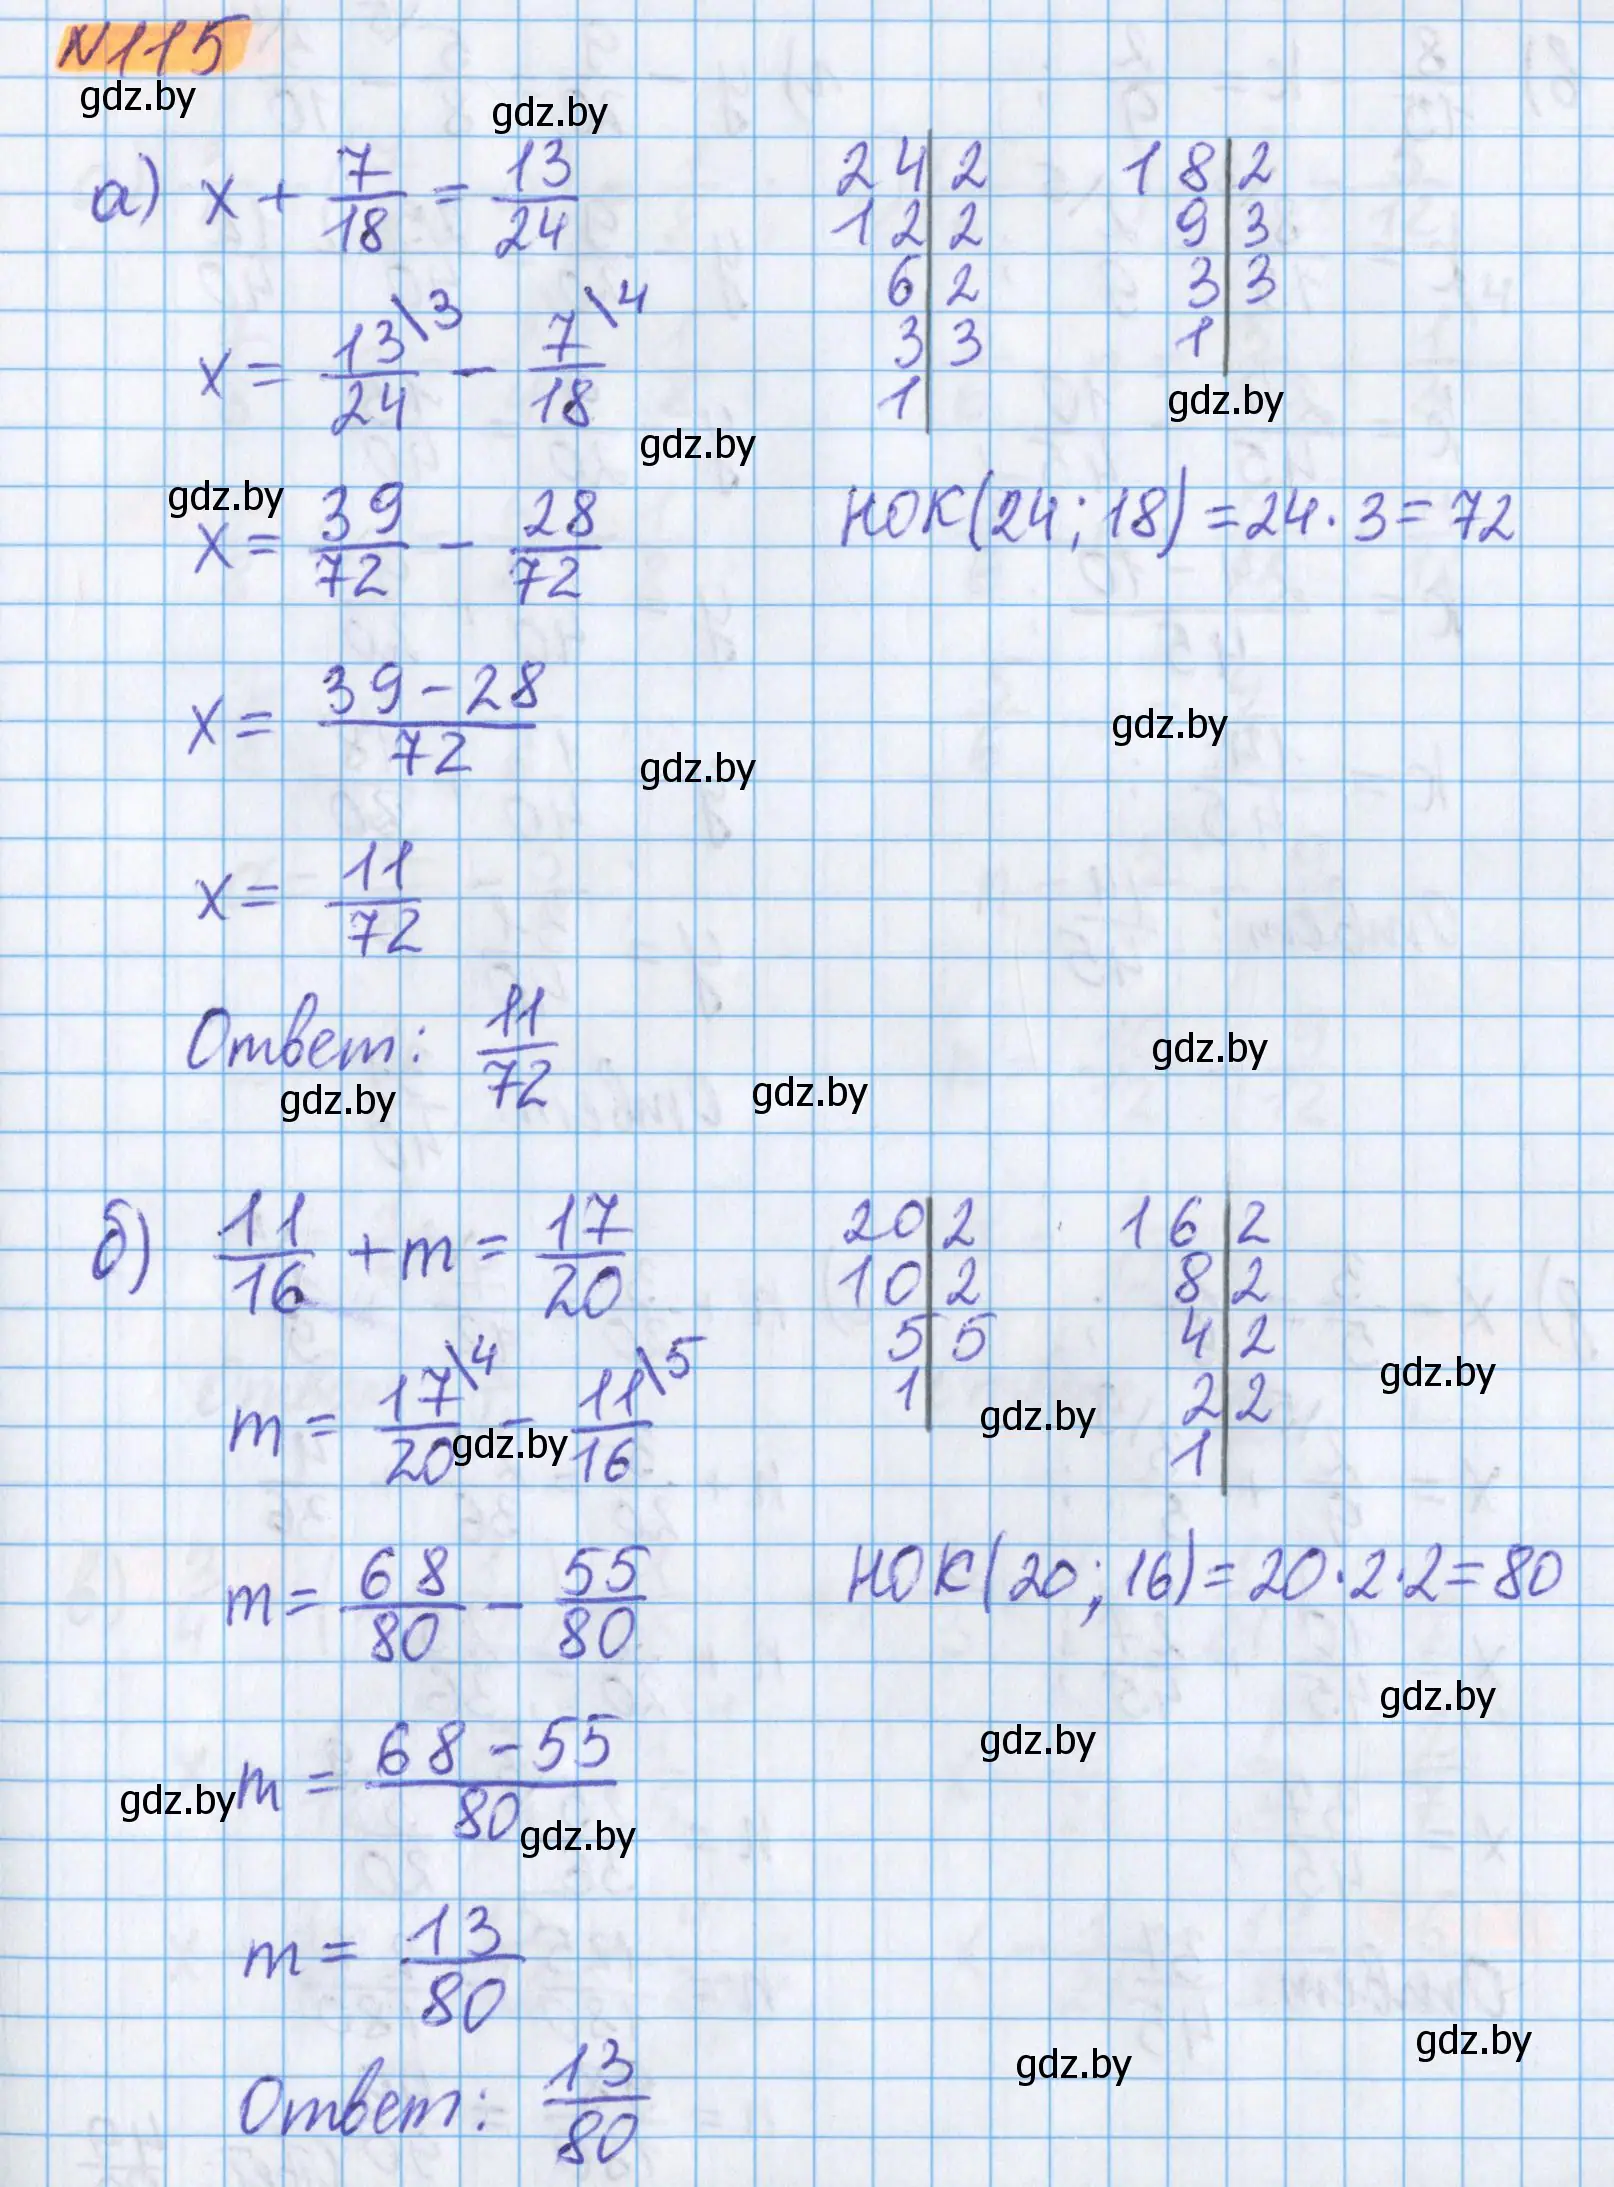 N115
gdz.by
gdz.by
а) x + 7/18 = 13/24
x = 13/24 \3 − 7/18 \4
gdz.by
gdz.by
x = 39/72 − 28/72
x = 39 − 28/72
gdz.by
x = 11/72
Ответ: 11/72
gdz.by
gdz.by
24|2
12|2
6|2
3|3
1|
18|2
9|3
3|3
1|
gdz.by
НОК(24; 18) = 24 · 3 = 72
gdz.by
gdz.by
б) 11/16 + m = 17/20
m = 17/20 \4 − 11/16 \5
gdz.by
m = 68/80 − 55/80
m = 68 − 55/80
gdz.by
gdz.by
m = 13/80
Ответ: 13/80
20|2
10|2
5|5
1|
gdz.by
16|2
8|2
4|2
2|2
1|
gdz.by
НОК(20; 16) = 20 · 2 · 2 = 80
gdz.by
gdz.by
gdz.by
gdz.by